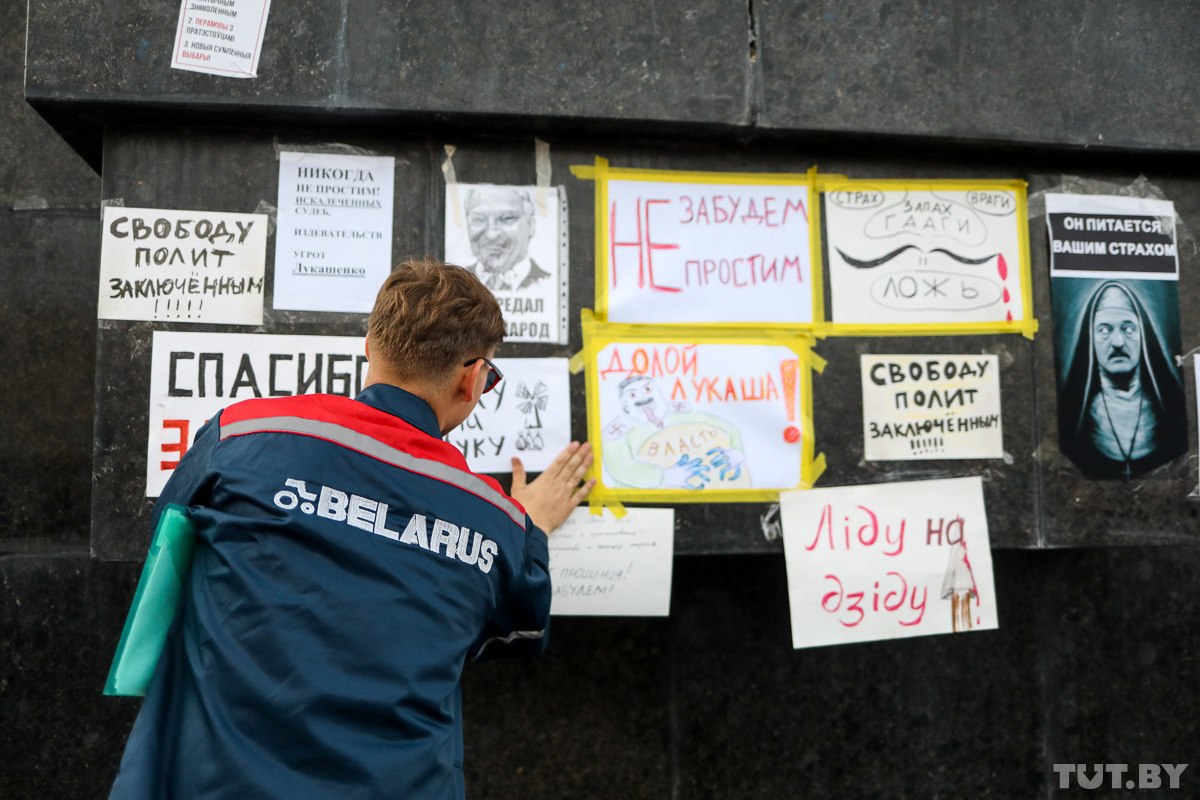 ЗНЯВОЛЕНЫМ
2. ПЕРАМОВЫ З
ПРАТЭСТОЎЦАМІ
3. НОВЫЯ СУМЛЕННЫЯ
ВЫБАРЫ!
СВОБОДУ
ПОЛИТ
ЗАКЛЮЧЁННЫМ
!!!!!
НИКОГДА
НЕ ПРОСТИМ!
ИСКАЛЕЧЕННЫХ
СУДЕБ,
ИЗДЕВАТЕЛЬСТВ
УГРОЗ
Лукашенко
РЕДАЛ
НАРОД
НЕ ЗАБУДЕМ
ПРОСТИМ
СТРАХ
ЗАПАХ
ГААГИ
ВРАГИ
ЛОЖЬ
ОН ПИТАЕТСЯ
ВАШИМ СТРАХОМ
СПАСИБО
ДОЛОЙ
ЛУКАША!
ВЛАСТЬ
СВОБОДУ
ПОЛИТ
ЗАКЛЮЧЁННЫМ
!!!!!!
ПРОЩЕНИЯ!
ЗАБУДЕМ!
Ліду на
дзіду
BELARUS
TUT.BY